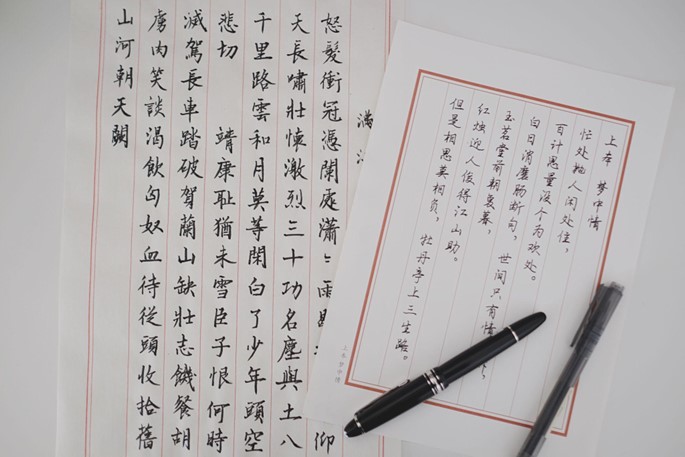 滿
怒髮衝冠憑闌處瀟〻雨 仰
天長嘯壯懷激烈三十功名塵與土八
千里路雲和月莫等閑白了少年頭空
悲切 靖康恥猶未雪臣子恨何時
滅駕長車踏破賀蘭山缺壯志饑餐胡
虜肉笑談渴飲匈奴血待從頭收拾舊
山河朝天闕
上本 梦中情
忙处抛人闲处住,
百计思量没个为欢处。
白日消磨肠断句,世间只有情
玉茗堂前朝复暮,
红烛迎人俊得江山助。
但是相思莫相负,牡丹亭上三生路。
上本 梦中情